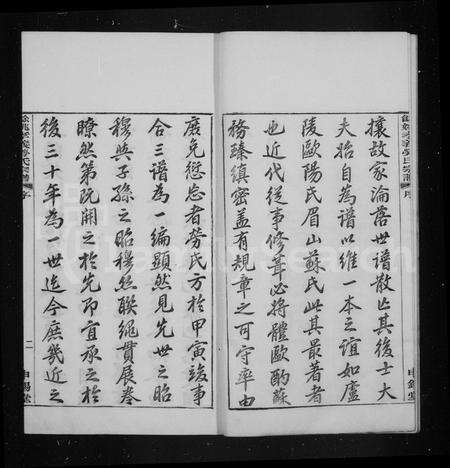 攘故家淪落世譜散亡其後士大
夫始自為譜以維一本之誼如廬
陵歐陽氏眉山蘇氏此其最著者
也近代從事修葺必將體歐酌蘇
務臻縝密蓋有規章之可守率由
序
磨免愆忘者勞氏方於甲寅竣事
合三譜為一編顯然見先世之昭
穆與子孫之昭穆丝聯繩貫展卷
瞭然第阮開之於先即宜承之於
後三十年為一世迄今庶幾近之
序
二